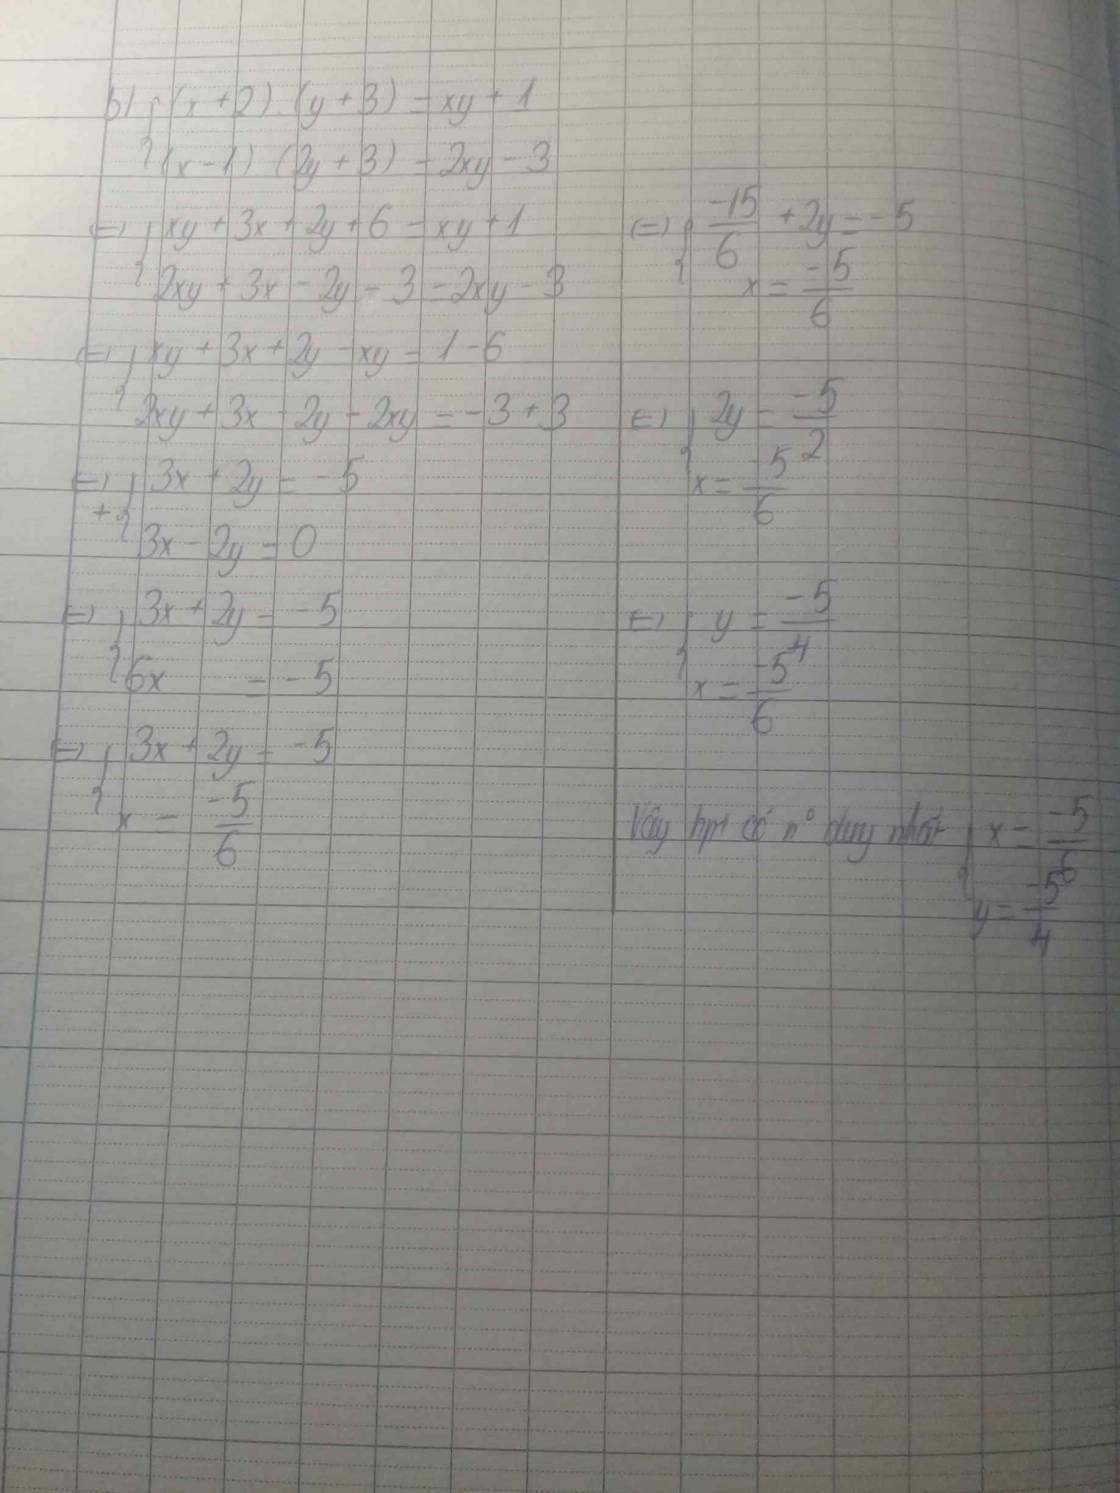 b) { (x+2).(y+3) = xy+1
(x-1) (2y+3) = 2xy-3
⇔ { xy+3x+2y+6 = xy+1
2xy+3x-2y-3 = 2xy-3
⇔ { xy+3x+2y-xy = 1-6
2xy+3x-2y-2xy = -3+3
⇔ { 3x+2y = -5
+
3x-2y = 0
⇔ { 3x+2y = -5
6x = -5
⇔ { 3x+2y = -5
x = -5/6
⇔ { -15/6 + 2y = -5
x = -5/6
⇔ { 2y = -5/2
x = -5/6
⇔ { y = -5/4
x = -5/6
Vậy hpt có n° duy nhất { x = -5/6
y = -5/4